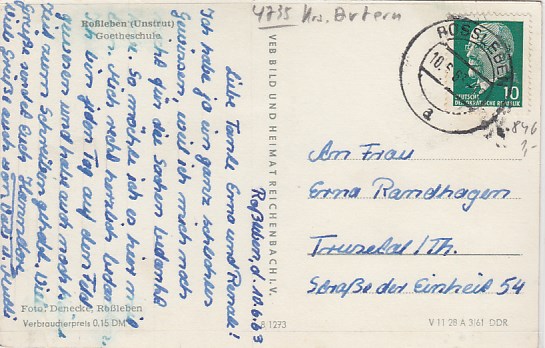 Roßleben (Unstrut)
Goetheschule
4735 Krs. Artern
ROSSLEBEN
a
DEUTSCHE
DEMOKRATISCHE REPUBLIK
10
VEB BILD UND HEIMAT REICHENBACH I. V.
Roßleben, d. 10.6.63
Liebe Tante Erna und Renate!
Ich habe ja ein ganz schlechtes
Gewissen, weil ich mich noch
nicht für die Sachen bedankt
habe. So möchte ich es hier mit
tun. Mich recht herzlich
Ich bin jeden Tag auf dem Feld
gewesen und habe auch noch keine
Zeit zum Schreiben gehabt. Viele
Grüße sendet Euch Hannelore
Viele Grüße auch von
An Frau
Erna Randhagen
Trusetal/Th.
Straße der Einheit 54
Foto: Denecke, Roßleben
Verbraucherpreis 0,15 DM
8/1273
V 11 28 A 3/61 DDR